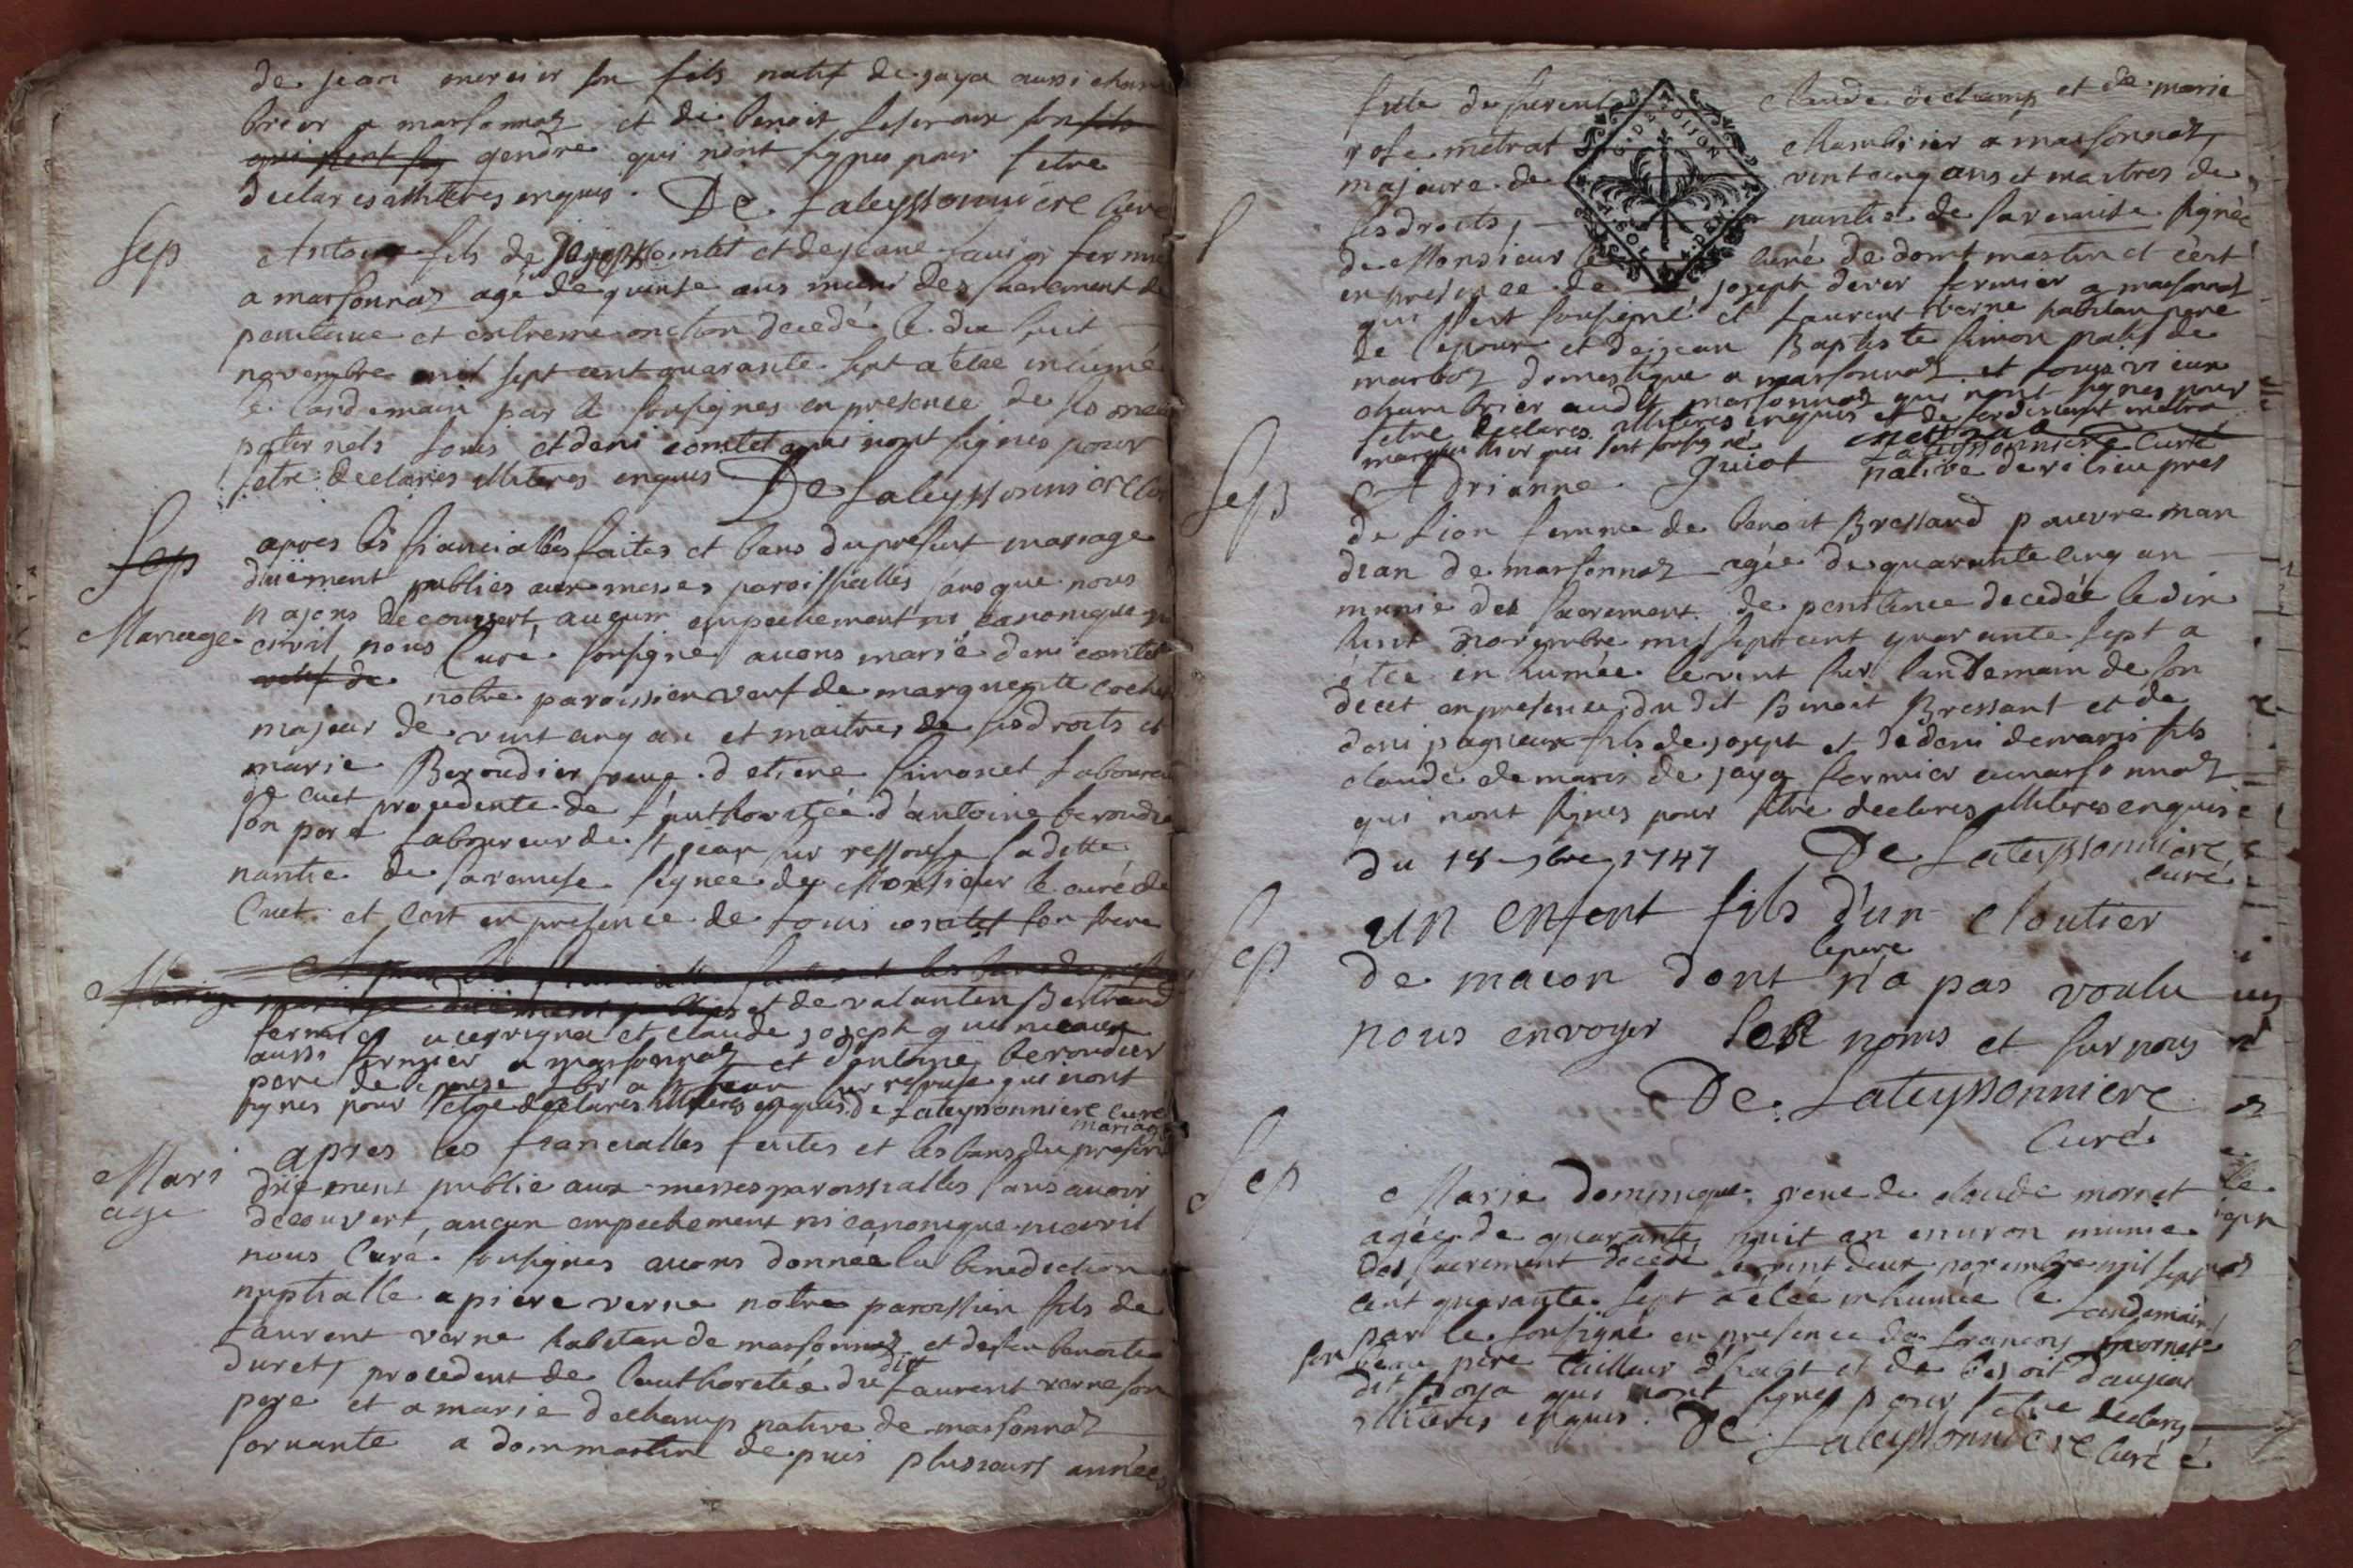 de jean mercier son fils natif de jaya aussi cham
brier a marsonnaz et de benoit son fils
qui sont son gendre qui nont signes pour letre
declares illiteres enquis. De Lateyssonniere Curé
Sep
Antoine fils de joseph comtet et de jeane fermier
a marsonnaz agé de quinse ans muni des sacrement de
penitence et extreme onction decedé le dix huit
novembre mil sept cent quarante sept a etée inhumé
le landemain par le soussignes en presence de ses oncles
paternels louis et deni comtet qui nont signes pour
letre declares illiteres enquis De Lateyssonniere Curé
Sep
Mariage
apres les fiancialles faites et bans du present mariage
duëment publies aux messes paroissialles sans que nous
n ajons decouvert aucun empechement ni canonique ni
civil nous Curé soussigné avons marié deni comtet
natif de notre paroissien veuf de marguerite cochet
majeur de vint cinq an et maitre de ses droits et
marie Beroudier veuve d etiene simonet laboureur
de cuet procedente de l'authoritée d'antoine beroudier
son pere laboureur de st jean sur ressouse ladette
nantie de sa remise signée de Monsieur le curé de
Cuet et cest en presence de louis comtet son frere
Mariage
et de valantin Bertrand
fermier a cevrigna et claude josept
aussi fermier a marsonnaz et dantoine beroudier
pere de lepouse sur ressouse qui nont
signes pour letre declares illiteres enquis. de Lateyssonniere Curé
mariage
Mari
age
apres les fiancialles faites et les bans du present
duëment publie aux messes paroissialles sans avoir
decouvert, aucun empechement ni canonique ni civil
nous Curé soussignes avons donnée la benediction
nuptialle a piere verne notre paroissien fils de
Laurent verne habitan de marsonnaz et defeu benoite
duret, procedent de l'authoritée du dit Laurent verne son
pere et a marie dechamp native de marsonnaz
servante a dommartin depuis plusieurs années
fille de claude dechamp et de marie
rose metrat chambrier a marsonnaz,
majeure de vint cinq ans et maitres de
ses droits, nantie de sa remise signée
de Monsieur le curé de domt martin et cest
en presence de josept fermier a marsonnaz
qui sest soussigné et Laurent verne habitan pere
de lepoux et de jean Baptiste simon natif de
marboz domestique a marsonnaz et louis vieux
chambrier audit marsonnaz qui nont signes pour
letre declares illiteres enquis et de ferdinant metra
marguillier qui sest soussigné. guiot metrat
Lateyssonniere Curé
Sep
Adrianne native de pres
de Lion femme de benoit Bressand pauvre man
dian de marsonnaz agée de quarante cinq an
munie des sacrement de penitence decedée le dix
huit novembre mil sept cent quarante sept a
étée inhumée le vint sur landemain de son
decet en presence du dit Benoit Bressant et de
deni pagneux fils de josept et de deni demaris fils
claude de maris de jaya fermier a marsonnaz
qui nont signes pour letre declares illiteres enquis
du 18 9bre 1747 De Lateyssonniere
Curé
Sep
un enfent fils d'un cloutier
de macon dont le pere n'a pas voulu
nous envoyer les noms et surnoms
De Lateyssonniere
Curé
Sep
Marie dominique veuve de claude mornet
agée de quarante huit an environ munie
des sacrement decedé le vint deux novembre mil sept
cent quarante sept a etée inhumée le landemain
par le soussigné en presence de françois mornet
son beau pere tailleur d'habit et de benoit
dit qui nont signes pour letre declares
illiteres enquis. De Lateyssonniere Curé